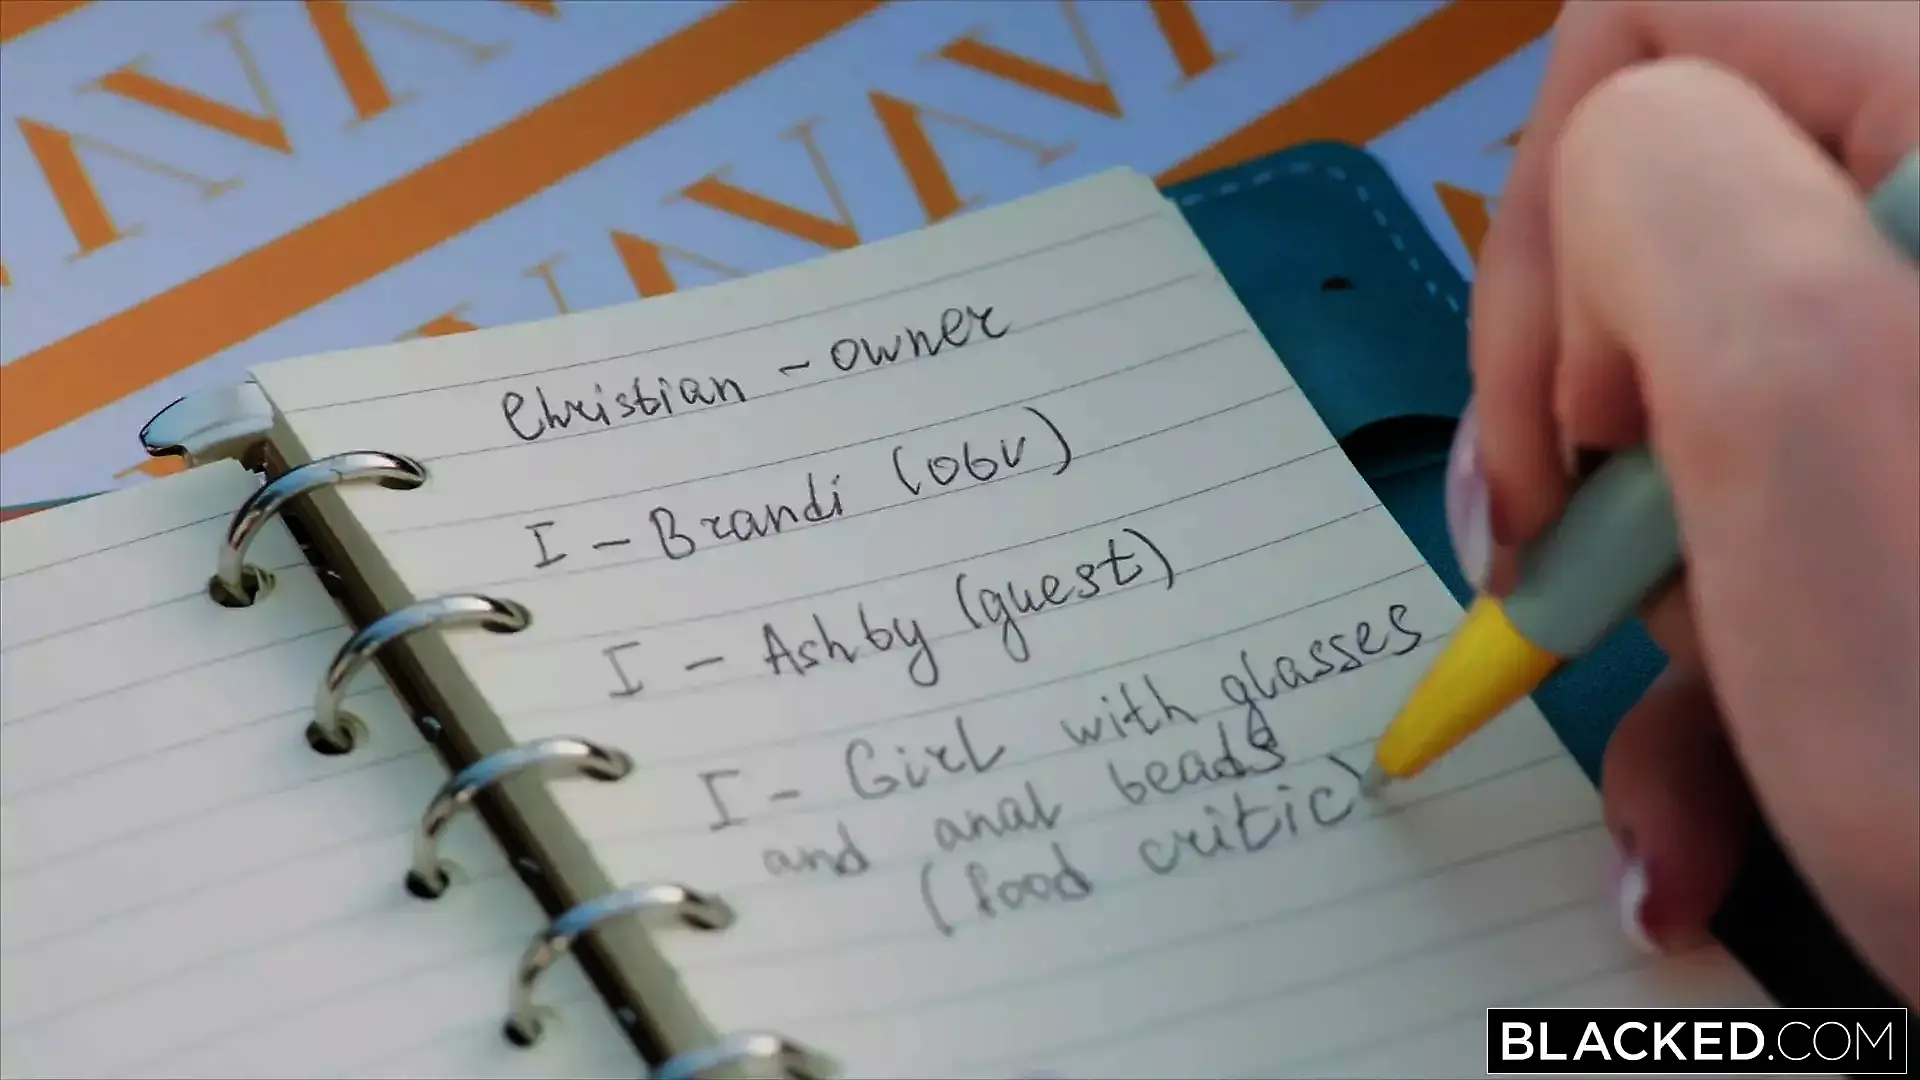 Christian - owner
I - Brandi (obv)
I - Ashby (guest)
I - Girl with glasses
and anal beads
(food critic)
BLACKED.COM